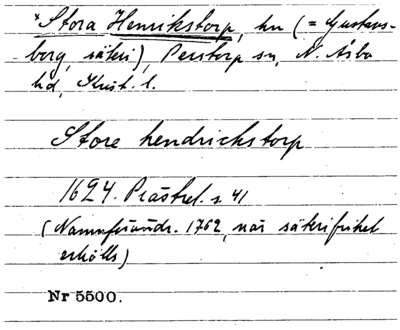 *Stora Henrikstorp, hn (= Gustavs-
borg, säteri), Perstorp sn, N. Åsbo
hd, Krist. l.
Store hendrickstorp
1624. Prästrel. s 41
(Namnförändr. 1762, när säterifrihet
erhölls)
Nr 5500.